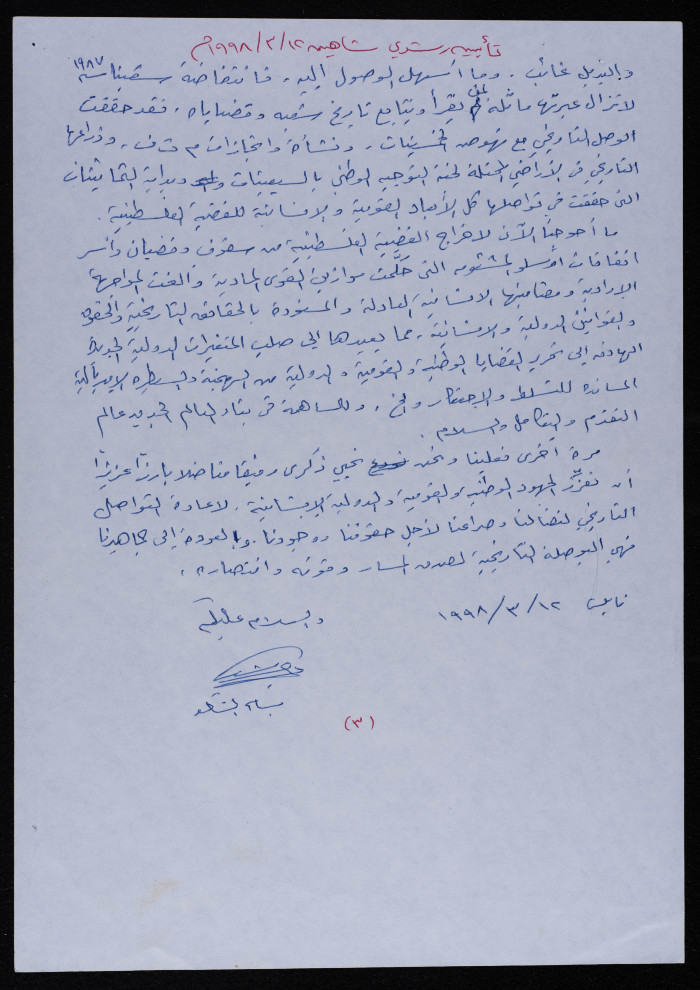 تأبين رشدي شاهين ١٩٩٨/٣/١٢م
والبديل غائب. وما أسهل الوصول إليه، فانتفاضة شعبنا سنة ١٩٨٧
لا تزال عبرتها ماثلة لمن يقرأ ويتابع تاريخ شعبه وقضاياه، فقد حققت
الوصل التاريخي مع نهوض الخمسينات، ونشأة وانجازات م ت ف، وذراعها
التاريخي في الأراضي المحتلة لجنة التوجيه الوطني بالسبعينات وبداية الثمانينات
التي حققت في تواصلها كل الأبعاد القومية والإنسانية للقضية الفلسطينية.
ما أحوجنا الآن لاخراج القضية الفلسطينية من سقوف وقضبان وأسر
اتفاقات أوسلو المشئومه التي حكّمت موازين القوى المادية وألغت المواجهة
الإرادية ومضامينها الانسانية العادلة والمسنودة بالحقائق التاريخية والحقوق
والقوانين الدولية والإنسانية، مما يعيدها إلى صلب المتغيرات الدولية الجديدة
الهادفه إلى تحرير القضايا الوطنية والقومية والدولية من الهيمنة والسيطره الامبريالية
الساندة للتسلط والاحتكار والخ، وللمساهمة في بناء العالم الجديد عالم
التقدم والتكامل والسلام.
مرة أخرى فعلينا ونحن نحيي ذكرى رفيقا مناضلا بارزاً عزيزاً
أن نعزّز الجهود الوطنية والقومية والدولية الإنسانية، لاعادة التواصل
التاريخي لنضالنا وصراعنا لأجل حقوقنا ووجودنا، وبالعودة إلى جماهيرنا
فهي البوصلة التاريخية لصدق المسار وقوته وانتصاره.
نابلس ١٩٩٨/٣/١٢
والسلام عليكم
بسام الشكعه
(٣)